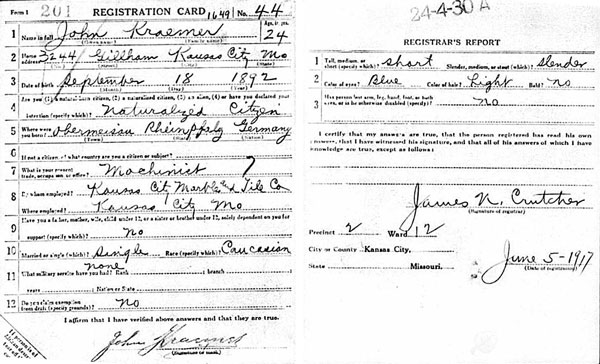 Form 1 201 REGISTRATION CARD 1649 No. 44
1 Name in full John Kraemer Age, in yrs. 24
2 Home address 3244 Gillham Kansas City Mo
3 Date of birth September 18 1892
(Month) (Day) (Year)
4 Are you (1) a natural-born citizen, (2) a naturalized citizen, (3) an alien, (4) or have you declared your
intention (specify which)? Naturalized Citizen
5 Where were you born? Obermeissau Rheinpfalz Germany
(Town) (State) (Nation)
6 If not a citizen, of what country are you a citizen or subject?
7 What is your present trade, occupation, or office? Machinist 7
8 By whom employed? Kansas City Marble & Tile Co
Where employed? Kansas City Mo
9 Have you a father, mother, wife, child under 12, or a sister or brother under 12, solely dependent on you for
support (specify which)? No
10 Married or single (which)? Single Race (specify which)? Caucasian
11 What military service have you had? Rank none branch
years Nation or State
12 Do you claim exemption from draft (specify grounds)? No
I affirm that I have verified above answers and that they are true.
John Kraemer
24-4-30 A
REGISTRAR'S REPORT
1 Tall, medium, or short (specify which)? short Slender, medium, or stout (which)? slender
2 Color of eyes? Blue Color of hair? Light Bald? No
3 Has person lost arm, leg, hand, foot, or both eyes, or is he otherwise disabled (specify)? No
I certify that my answers are true, that the person registered has read his own
answers, that I have witnessed his signature, and that all of his answers of which I have
knowledge are true, except as follows:
James N. Crutcher
(Signature of registrar)
Precinct 2 Ward 12
City or County Kansas City,
State Missouri.
June 5-1917
(Date of registration)